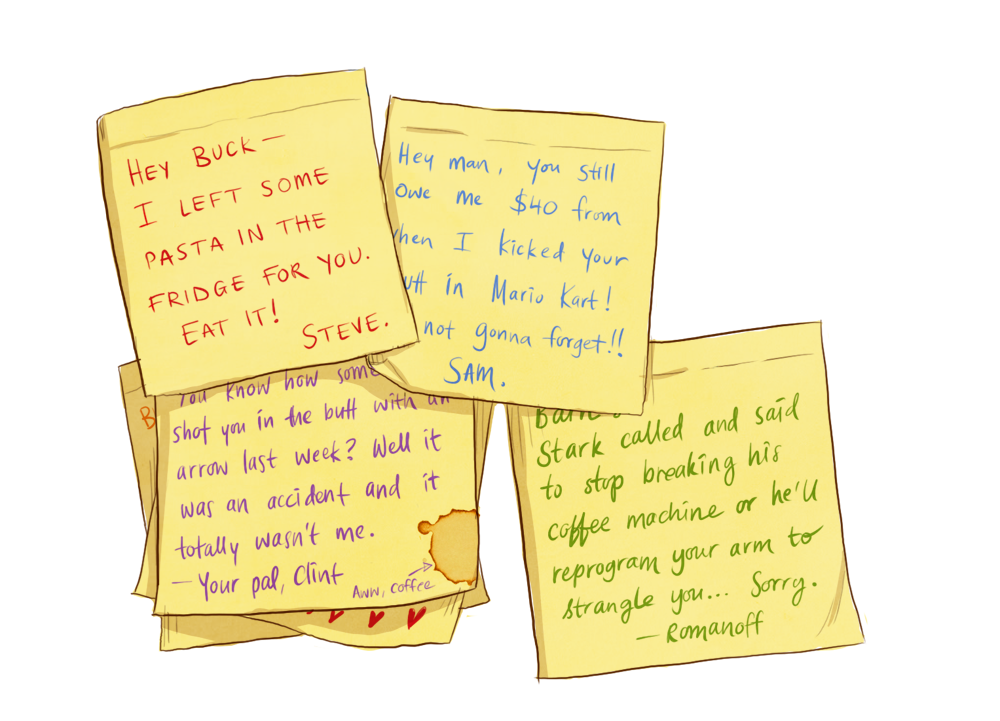 HEY BUCK—
I LEFT SOME
PASTA IN THE
FRIDGE FOR YOU.
EAT IT!
STEVE.
Hey man, you still
owe me $40 from
I kicked your
in Mario Kart!
not gonna forget!!
SAM.
You know how
shot you in the butt with an
arrow last week? Well it
was an accident and it
totally wasn't me.
—Your pal, Clint
Aww, coffee
Stark called and said
to stop breaking his
coffee machine or he'll
reprogram your arm to
strangle you... Sorry.
—Romanoff